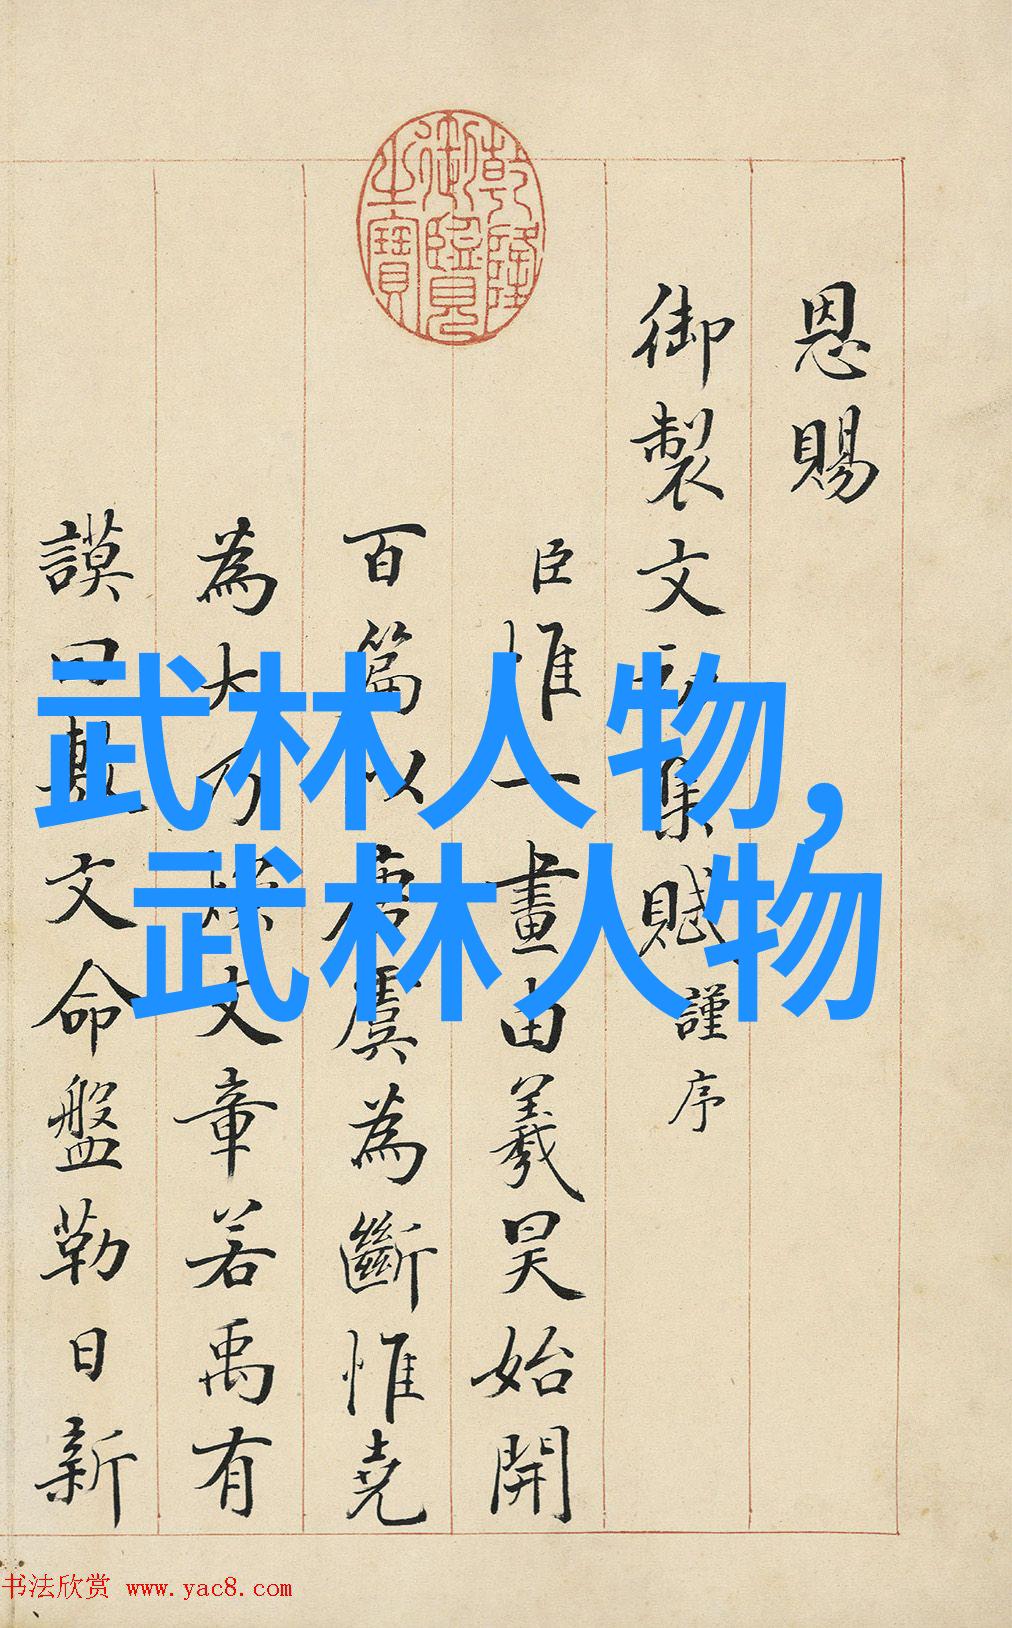 恩賜
御製文初集賦謹序
臣惟一畫由羲昊始開
百篇以唐虞為斷惟堯
為大乃煥文章若禹有
謨曰敷文命盤勒日新
乾隆御覽之寶
武林人物,
武林人物
书法欣赏 www.yac8.com